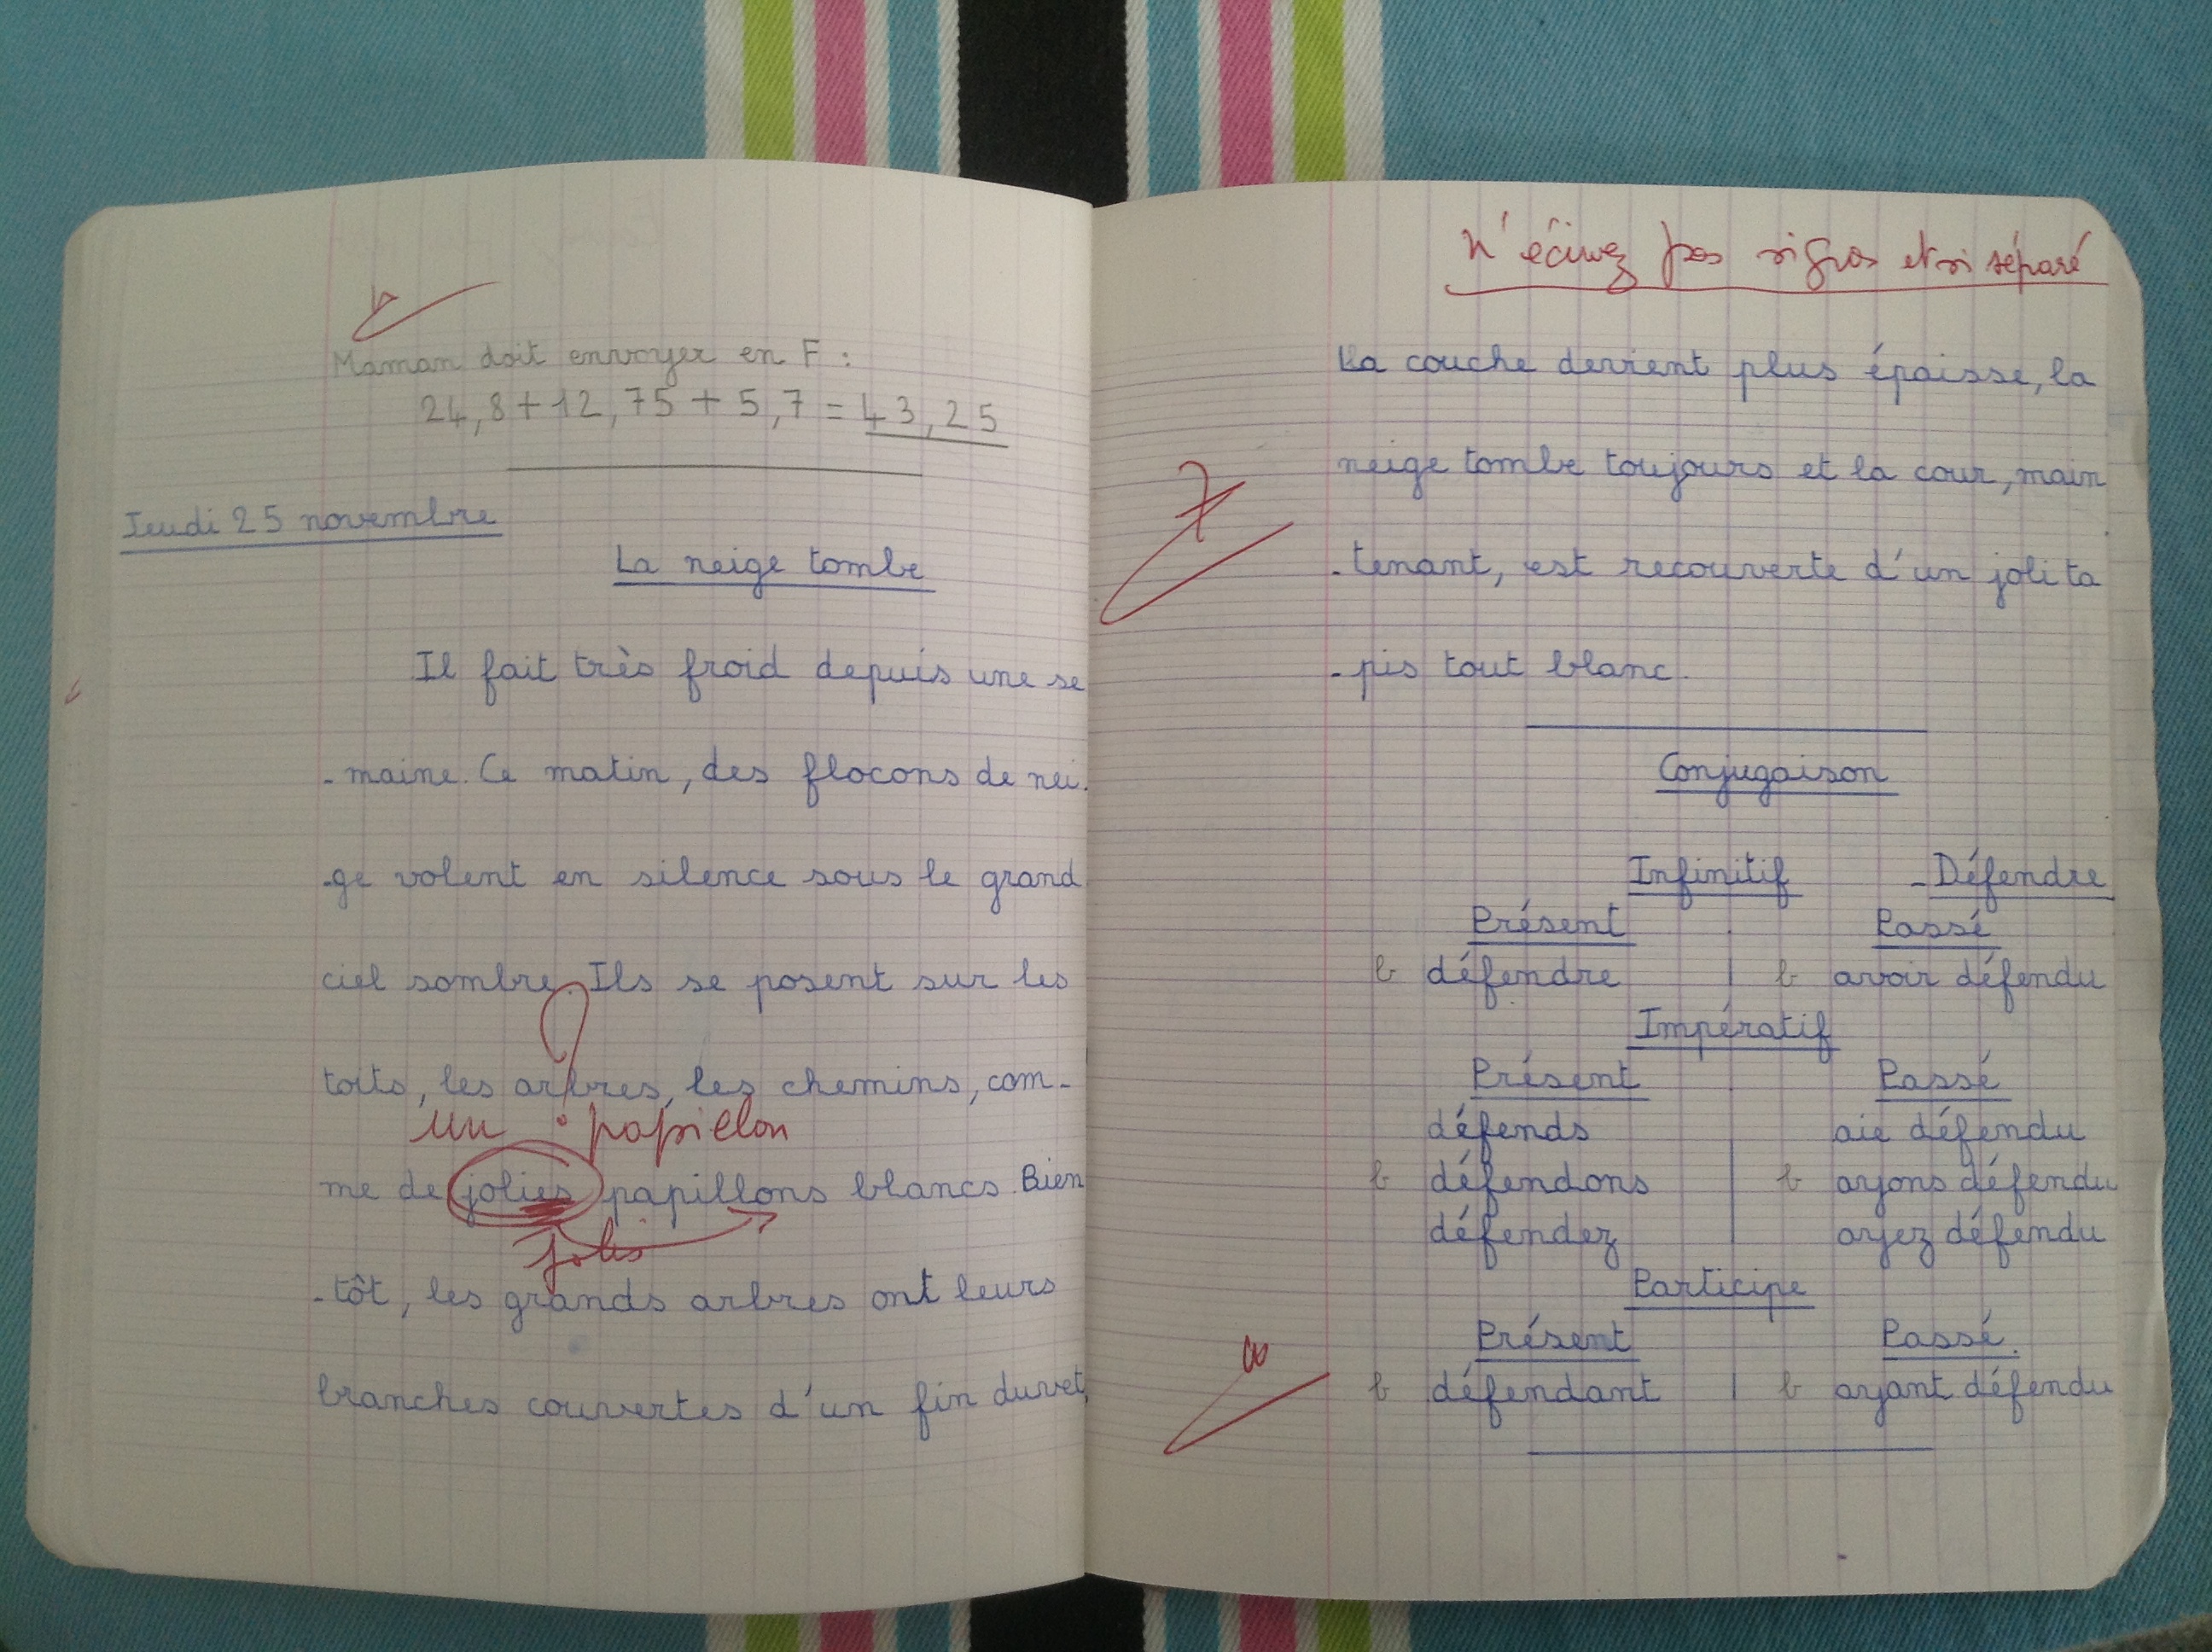 Maman doit envoyer en F :
24,8 + 12,75 + 5,7 = 43,25
Jeudi 25 novembre
La neige tombe
Il fait très froid depuis une se
- maine. Ce matin, des flocons de nei.
-ge volent en silence sous le grand
ciel sombre. Ils se posent sur les
toits, les arbres, les chemins, com-
un papillon
me de jolies papillons blancs. Bien
jolis
- tôt, les grands arbres ont leurs
branches couvertes d'un fin duvet,
N'écrivez pas si gros et si séparé
La couche devient plus épaisse, la
neige tombe toujours et la cour, main
- tenant, est recouverte d'un joli ta
- pis tout blanc.
Conjugaison
- Défendre
Infinitif
Présent Passé
b défendre | b avoir défendu
Impératif
Présent Passé
défends aie défendu
b défendons | b ayons défendu
défendez ayez défendu
Participe
Présent Passé
b défendant | b ayant défendu